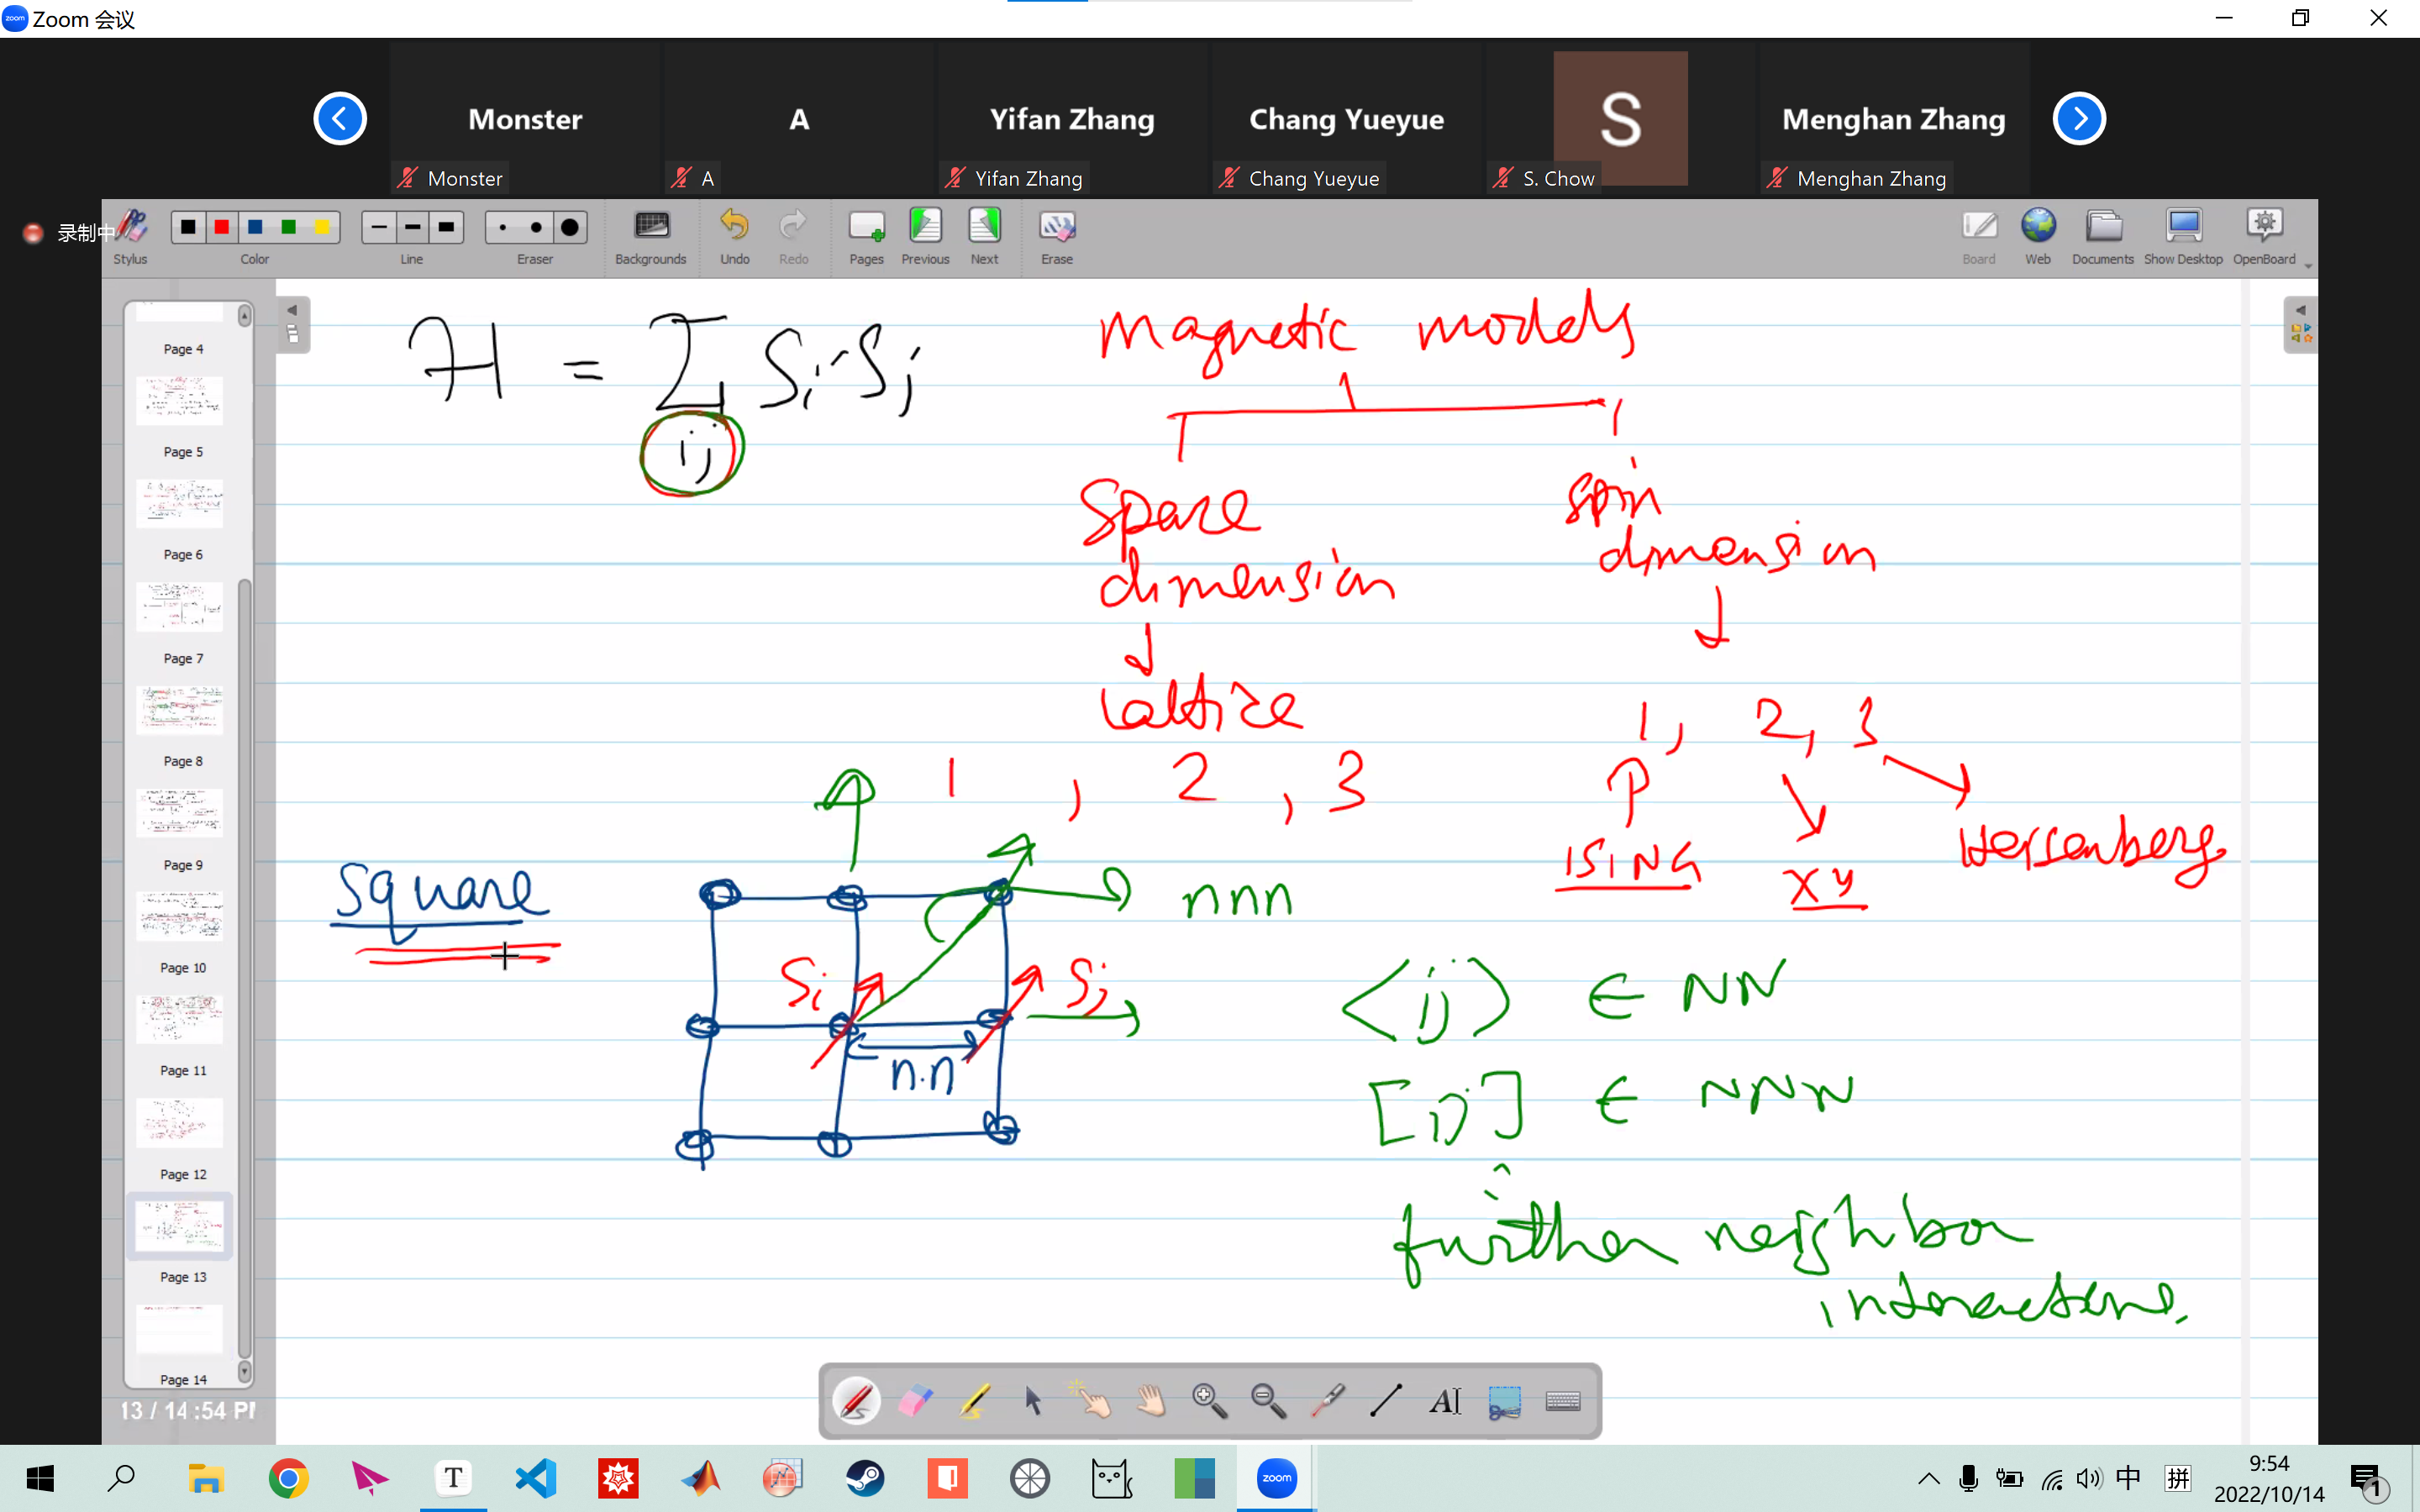 Zoom 会议
Monster
A
Yifan Zhang
Chang Yueyue
S
Menghan Zhang
Monster
A
Yifan Zhang
Chang Yueyue
S. Chow
Menghan Zhang
录制中
Stylus
Color
Line
Eraser
Backgrounds
Undo
Redo
Pages
Previous
Next
Erase
Board
Web
Documents
Show Desktop
OpenBoard
Page 4
Page 5
Page 6
Page 7
Page 8
Page 9
Page 10
Page 11
Page 12
Page 13
Page 14
13 / 14
:54 PM
H = Σ Si·Sj
ij
Magnetic models
Space
dimension
lattice
1, 2, 3
spin
dimension
1, 2, 3
ISING
XY
Heisenberg
Square
Si
Sj
n.n
nnn
<ij> ∈ NN
[ij] ∈ NNN
further neighbor
interactions.
AI
T
zoom
中
拼
9:54
2022/10/14
1